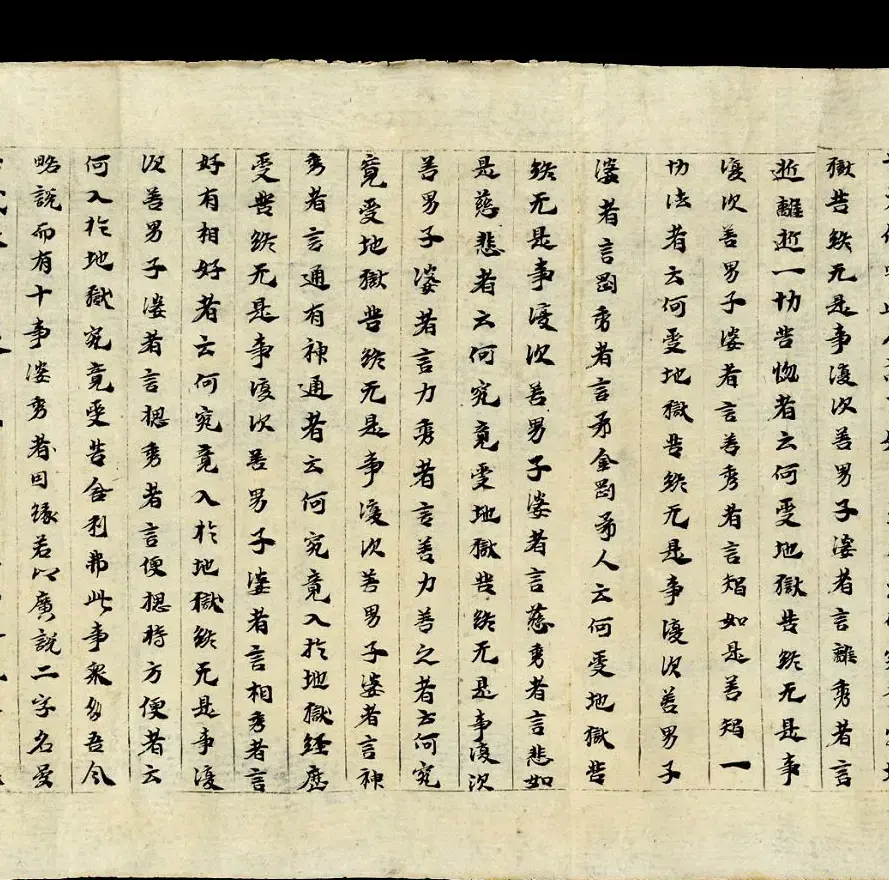 獄苦終无是事復次善男子婆者言離秀者言
逝離逝一切苦惱者云何受地獄苦終无是事
復次善男子婆者言善秀者言智如是善智一
切法者云何受地獄苦終无是事復次善男子
婆者言剛秀者言矛金剛矛人云何受地獄苦
終无是事復次善男子婆者言慈秀者言悲如
是慈悲者云何究竟受地獄苦終无是事復次
善男子婆者言力秀者言善力善之者云何究
竟受地獄苦終无是事復次善男子婆者言神
秀者言通有神通者云何究竟入於地獄經歷
受苦終无是事復次善男子婆者言相秀者言
好有相好者云何究竟入於地獄終无是事復
次善男子婆者言揔秀者言便揔時方便者云
何入於地獄究竟受苦舍利弗此事衆多吾今
略說而有十事婆秀者因緣若以廣說二字名量